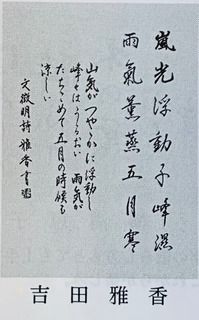 嵐光浮動千峰濕
雨氣薰蒸五月寒
山気がつやゝかに浮動し
峰々はうるおい 雨気が
たちこめて五月の時候も
涼しい
文徴明詩 雅香書
吉田雅香